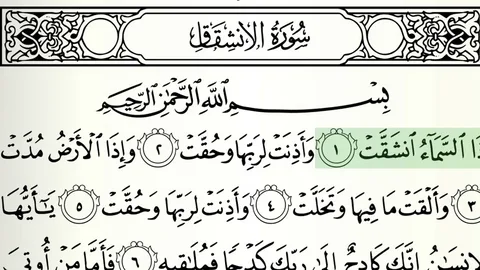 سُورَةُ الِانشِقَاقِ
بِسْمِ اللَّهِ الرَّحْمَٰنِ الرَّحِيمِ
السَّمَاءُ انشَقَّتْ ١ وَأَذِنَتْ لِرَبِّهَا وَحُقَّتْ ٢ وَإِذَا الْأَرْضُ مُدَّتْ
٣ وَأَلْقَتْ مَا فِيهَا وَتَخَلَّتْ ٤ وَأَذِنَتْ لِرَبِّهَا وَحُقَّتْ ٥ يَا أَيُّهَا
الْإِنسَانُ إِنَّكَ كَادِحٌ إِلَىٰ رَبِّكَ كَدْحًا فَمُلَاقِيهِ ٦ فَأَمَّا مَنْ أُوتِيَ